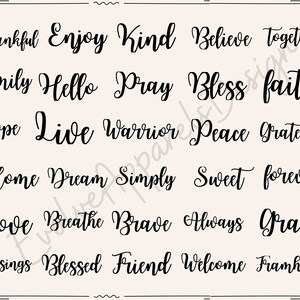 ankful Enjoy Kind Believe Togeth
mily Hello Pray Bless fait
ope Live Warrior Peace Grate
ome Dream Simply Sweet forev
ove Breathe Brave Always Gra
sings Blessed Friend Welcome Frankl
EvolveApparelsDesign